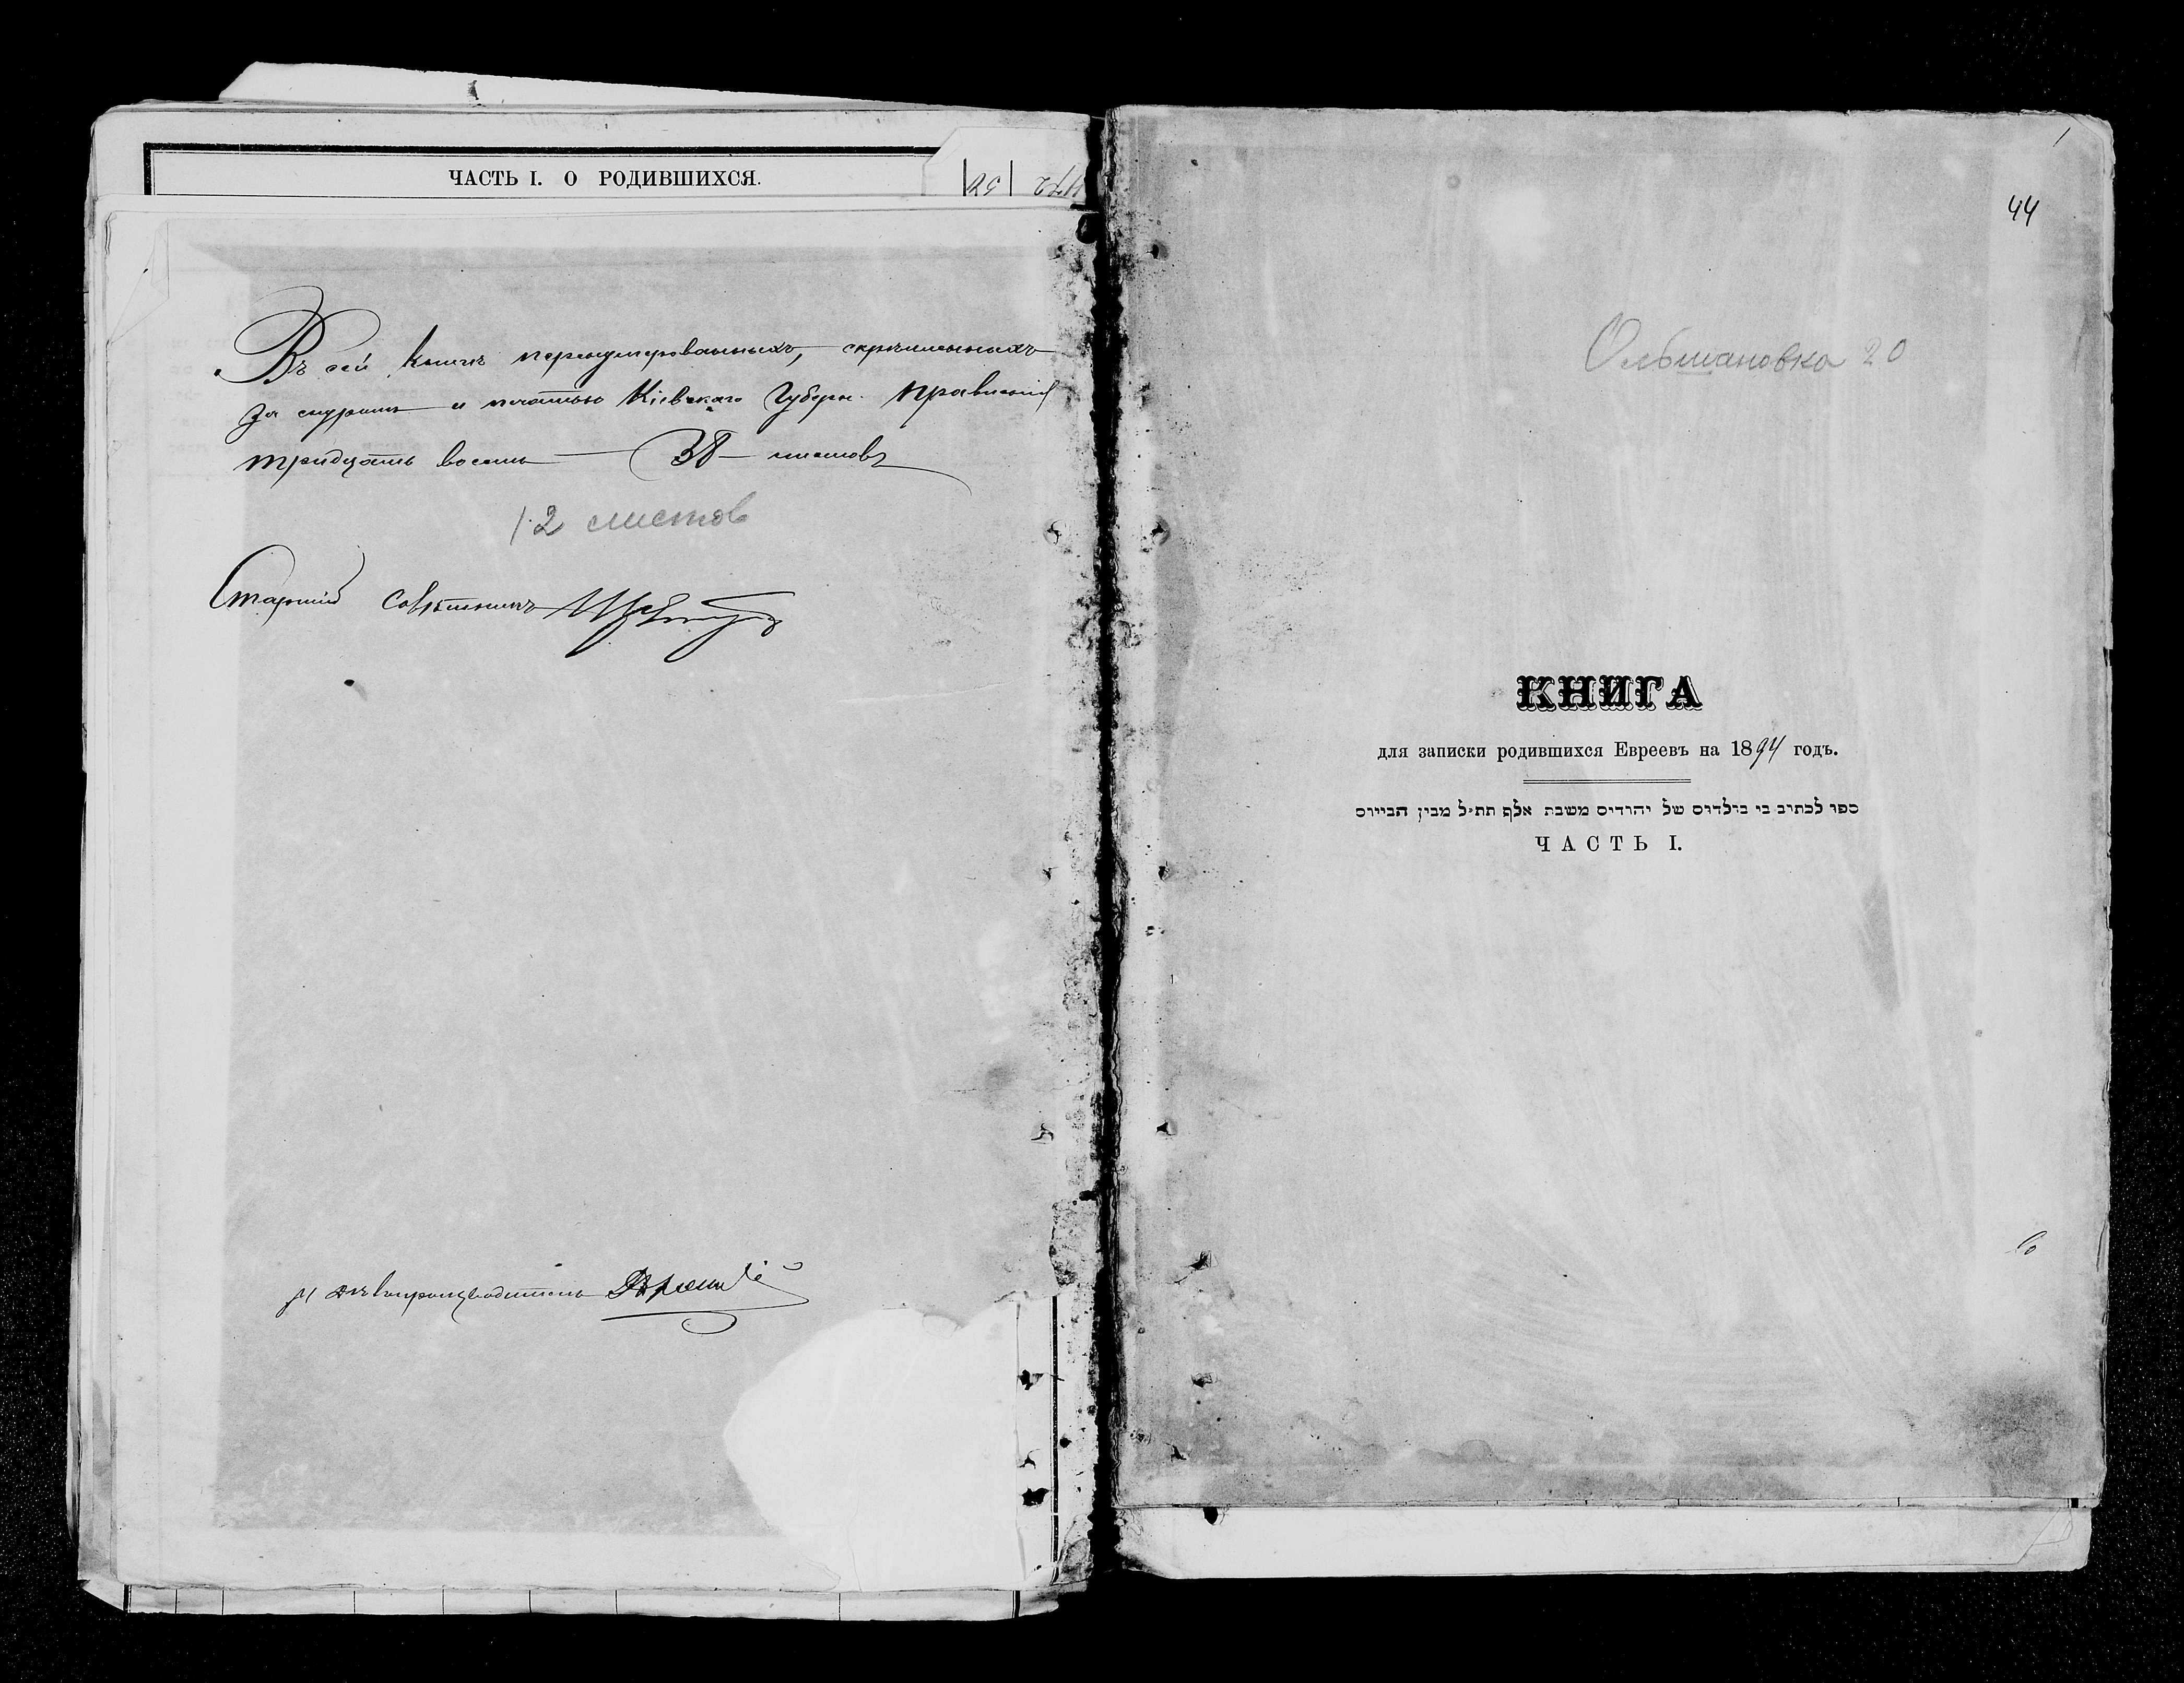 ЧАСТЬ I. О РОДИВШИХСЯ.
Въ сей книгѣ перенумерованныхъ, скрѣпленныхъ
за шнуромъ и печатью Кіевскаго Губерн. Правленія
тридцать восемь 38 листовъ
12 листов
Старшій Совѣтникъ
Дѣлопроизводитель
1
44
Ольшановка 20
КНИГА
для записки родившихся Евреевъ на 1894 годъ.
ספר לכתוב בו בולדום של יהודים משנת אלף תת״ל מבין הביירם
ЧАСТЬ I.